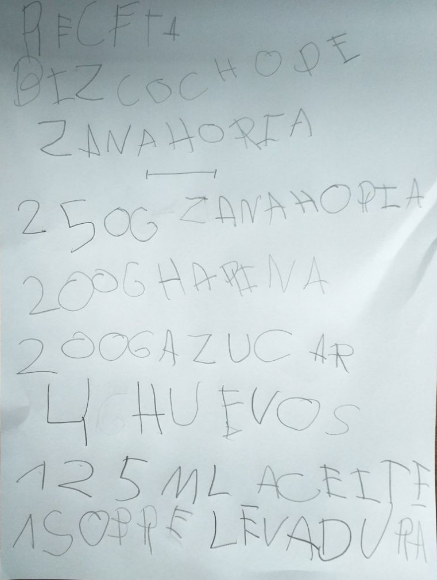 RECETA
BIZCOCHO DE
ZANAHORIA
250G ZANAHORIA
200G HARINA
200G AZUCAR
4 HUEVOS
125 ML ACEITE
1 SOBRE LEVADURA